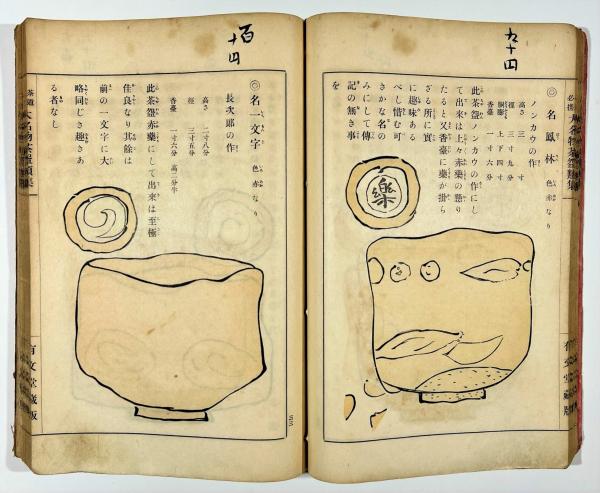 九十四
必携 大名物茶盌類集
◎名鳳林 色赤なり
ノンカウの作
高さ 三寸
徑 三寸九分
胴廻 上下四寸
香臺 一寸六分
此茶盌ノンカウの作にし
て出來は上々赤藥の懸り
ざる所に實
に趣味ある
べし惜む可
きかな名の
みにして傳
記の無き事
を
たると又香臺に藥が掛ら
樂
有文堂蔵版
百十四
◎名一文字 色赤なり
長次郎の作
高さ 二寸八分
徑 三寸五分
香臺 一寸六分 高二分半
此茶盌赤藥にして出來は至極
佳良なり其餘は
前の一文字に大
略同じき趣きあ
る者なし
茶道 大名物茶盌類集
有文堂蔵版